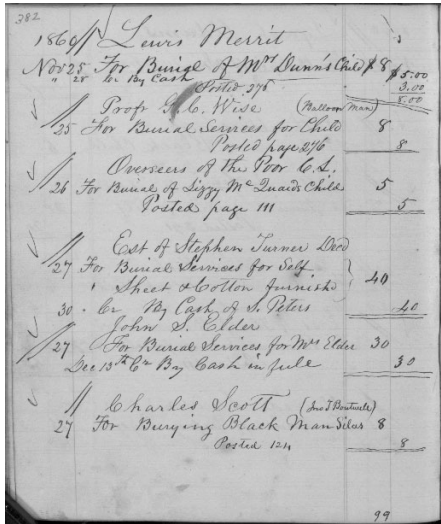 382
1860 // Lewis Merrit
Nov 25 For Burial of Mrs Dunn's Child $8
" 28 Cr By Cash $5.00
Posted 276 3.00
8.00
// Profr G. C. Wise (Balloon Man)
25 For Burial Services for Child 8
Posted page 276 8
// Overseers of the Poor C. S.
26 For Burial of Lizzy Mc Quaids Child 5
Posted page 111 5
// Est of Stephen Turner Decd
27 For Burial Services for Self
" Sheet & Cotton furnishd } 40
30 " Cr By Cash of S. Peters 40
// John S. Elder
27 For Burial Services for Mrs Elder 30
Dec 13th Cr By Cash in full 30
// Charles Scott (Jno T Boutwell)
27 For Burying Black Man Silas 8
Posted 124 8
99